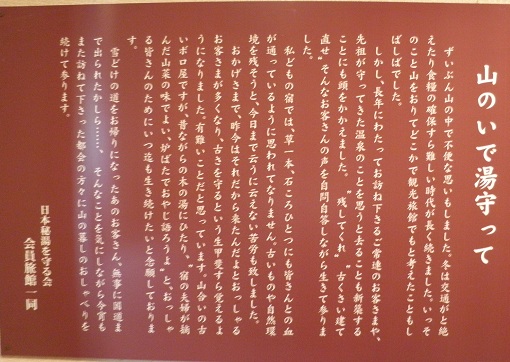 山のいで湯守って
ずいぶん山の中で不便な思いもしました。冬は交通がと絶
えたり食糧の確保すら難しい時代が長く続きました。いっそ
のこと山をおりてどこかで観光旅館でもと考えたこともし
ばしばでした。
しかし、長年にわたってお訪ね下さるご常連のお客さまや、
先祖が守ってきた温泉のことを思うと去ることも新築する
ことにも頭をかかえました。〝残してくれ〟〝古くさい建て
直せ〟そんなお客さんの声を自問自答しながら生きて参りま
した。
私どもの宿では、草一本、石ころひとつにも皆さんとの血
が通っているように思われてなりません。古いものや自然環
境を残そうと、今日まで云うに云えない苦労も致しました。
おかげさまで、昨今はそれだから来たんだよとおっしゃる
お客さまが多くなり、古さを守るという生甲斐すら覚えるよ
うになりました。有難いことだと思っています。山合いの古
いボロ屋ですが、昔ながらの木の湯にひたり、〝宿の夫婦が摘
んだ山菜の味でよい、炉ばたでおやじ語ろうよ〟と、おっしゃ
る皆さんのためにいつ迄も生き続けたいと念願しておりま
す。
雪どけの道をお帰りになったあのお客さん、無事に国道ま
で出られたかしら……。そんなことを気にしながら今宵も
また訪ねて下さった都会の方々に山の暮しのおしゃべりを
続けて参ります。
日本秘湯を守る会
会員旅館一同